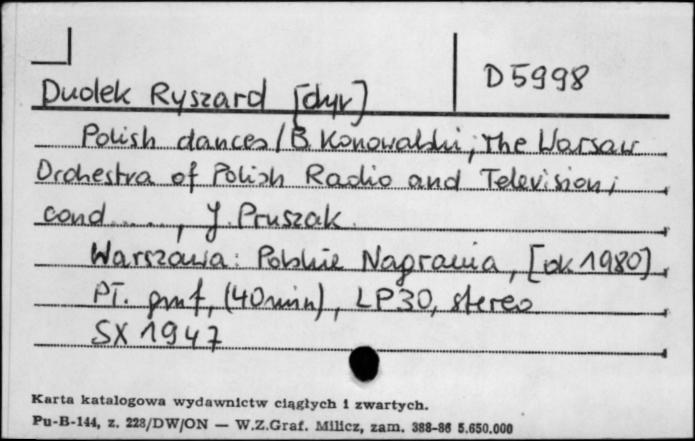 D5998
Dudek Ryszard [dyr]
Polish dances / B. Konowalski; The Warsaw
Orchestra of Polish Radio and Television;
cond. ....., J. Pruszak.
Warszawa: Polskie Nagrania, [ok. 1980].
Pł. gmf, (40 min), LP30, stereo
SX 1947
Karta katalogowa wydawnictw ciągłych i zwartych.
Pu-B-144, z. 228/DW/ON — W.Z.Graf. Milicz, zam. 388-86 5.650.000